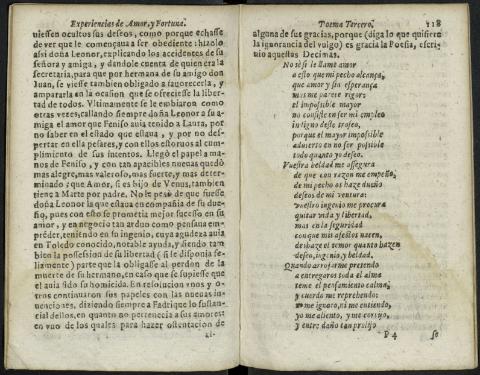 Experiencias de Amor, y Fortuna.
uiessen ocultos sus deseos, como porque echasse
de ver que le començaua a ser obediente: hizolo
assi doña Leonor, explicando los accidentes de su
señora y amiga, y dandole cuenta de quien era la
secretaria, para que por hermana de su amigo don
Iuan, se viesse tambien obligado a fauorecerla, y
ampararla en la ocasion que se ofreciesse la liber-
tad de todos. Vltimamente se le embiaron como
otras vezes, callando siempre doña Leonor a su a-
miga el amor que Feniso auia tenido a Laura, por
no saber en el estado que estaua, y por no desper-
tar en ella pesares, y con ellos estoruos al cum-
plimiento de sus intentos. Llegò el papel a ma-
nos de Feniso, y con tan apacibles nueuas quedò
mas alegre, mas valeroso, mas fuerte, y mas deter-
minado: que Amor, si es hijo de Venus, tambien
tiene a Marte por padre. No le pesò de que fuesse
doña Leonor la que estaua en compañia de su due-
ño, pues con esto se prometia mejor sucesso en su
amor, y en negocio tan arduo como pensaua em-
prẽder, teniendo en su ingenio, cuya agudeza auia
en Toledo conocido, notable ayuda, y siendo tam
bien la possession de su libertad (si le disponia fe-
lizmente) parte que la obligasse al perdon de la
muerte de su hermano, en caso que se supiesse que
el auia sido su homicida. En resolucion vnos y o-
tros continuaron sus papeles con las nueuas in-
uenciones, diziendo siempre a Fadrique lo sustan-
cial dellos, en quanto no pertenecia a sus amores:
en vno de los quales para hazer ostentacion de
al-
Poema Tercero. 118
alguna de sus gracias, porque (diga lo que quisiere
la ignorancia del vulgo) es gracia la Poesia, escri-
uio aquestas Decimas.
No sè si le llame amor
a esto que mi pecho alcança,
que amor y sin esperança
mas me parece rigor:
el impossible mayor
no consiste en ser mi empleo
indigno deste trofeo,
porque el mayor impossible
aduierto en no ser possible
todo quanto yo deseo.
Vuestra beldad me assegura
de que con razon me empeño,
de mi pecho os haze dueño
deseos de mi ventura:
vuestro ingenio me procura
quitar vida y libertad,
mas en la seguridad
con que mis afectos nacen,
deshaze el temor quanto hazen
deseo, ingenio, y beldad.
Quando arrojarme pretendo
a entregaros toda el alma
teme el pensamiento calma,
y cuerdo me reprehendo:
yo me ignoro, ni me entiendo,
yo me aliento, y me corrijo,
y entre daño tan prolijo
P 4 se